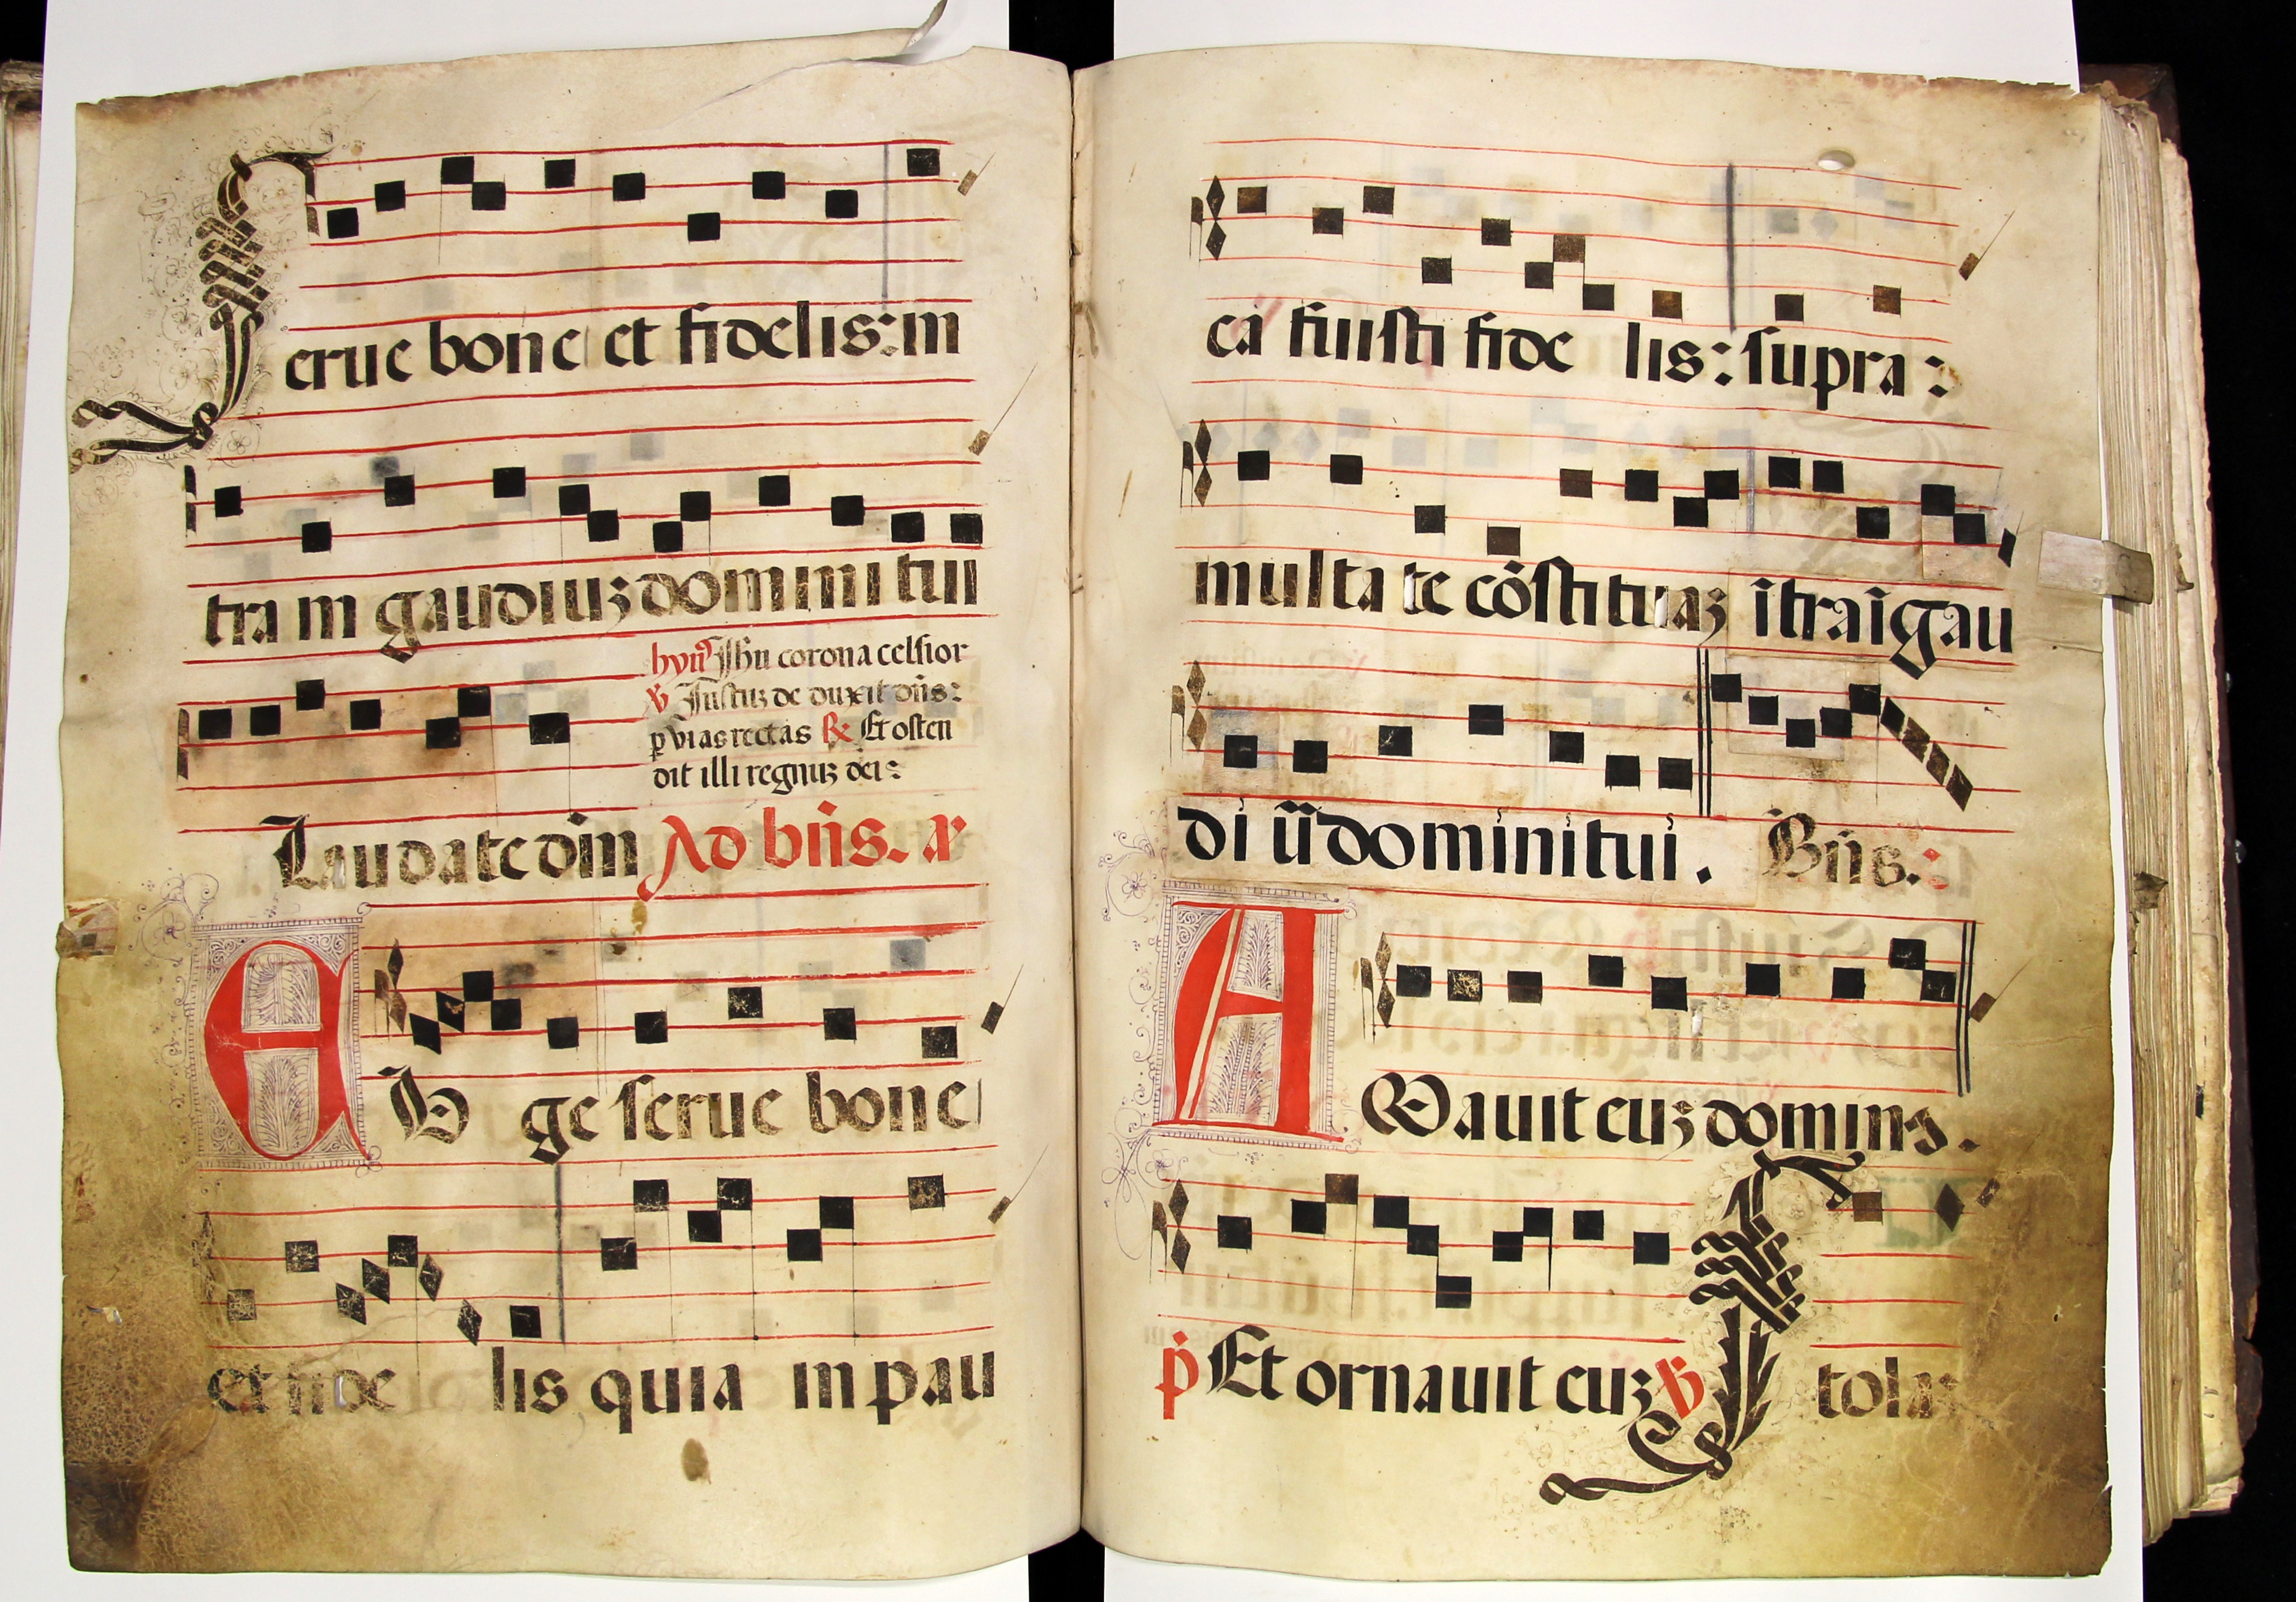 Serue bone et fidelis: in
tra in gaudiuʒ domini tui
hyn⁹ Jhu corona celsior
℣ Justuʒ deduxit dn̄s:
ꝑ vias rectas ℟ Et osten
dit illi regnuʒ dei:
Laudate dn̄m Ad bn̄s. a⁊
EV ge serue bone
et fide lis quia in pau
ca fuisti fide lis: supra:
multa te cōstituaʒ ītra ī gau
di ū domini tui. Bn̄s.:
AMauit euʒ domin⁹.
p̄ Et ornauit euʒ ℣ Stola: